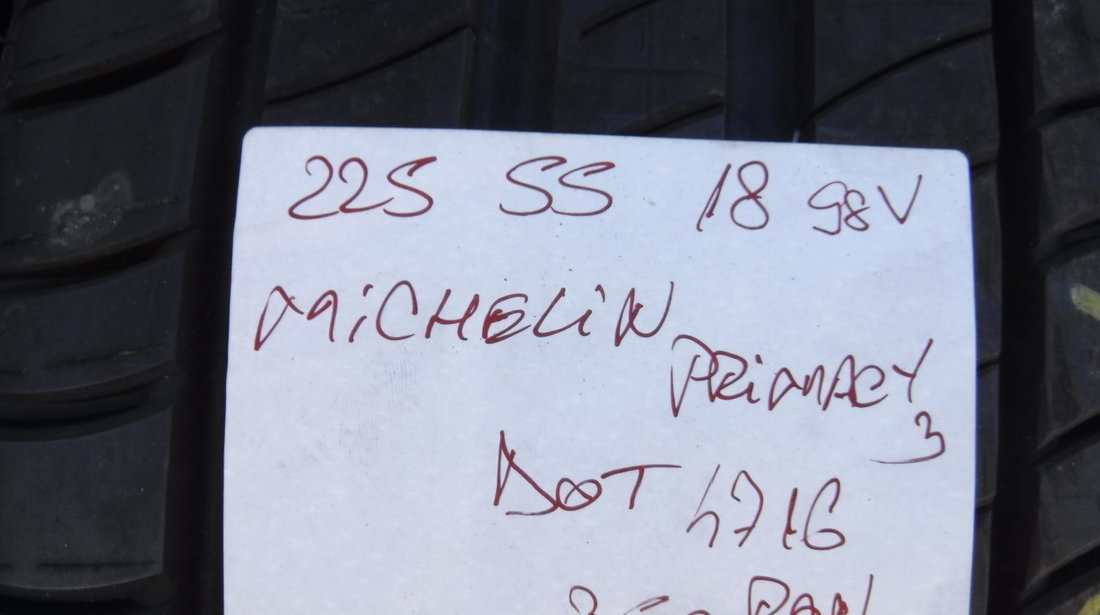 225 55 18 98V
MiCHELiN
PRiMACY
3
DOT 4716